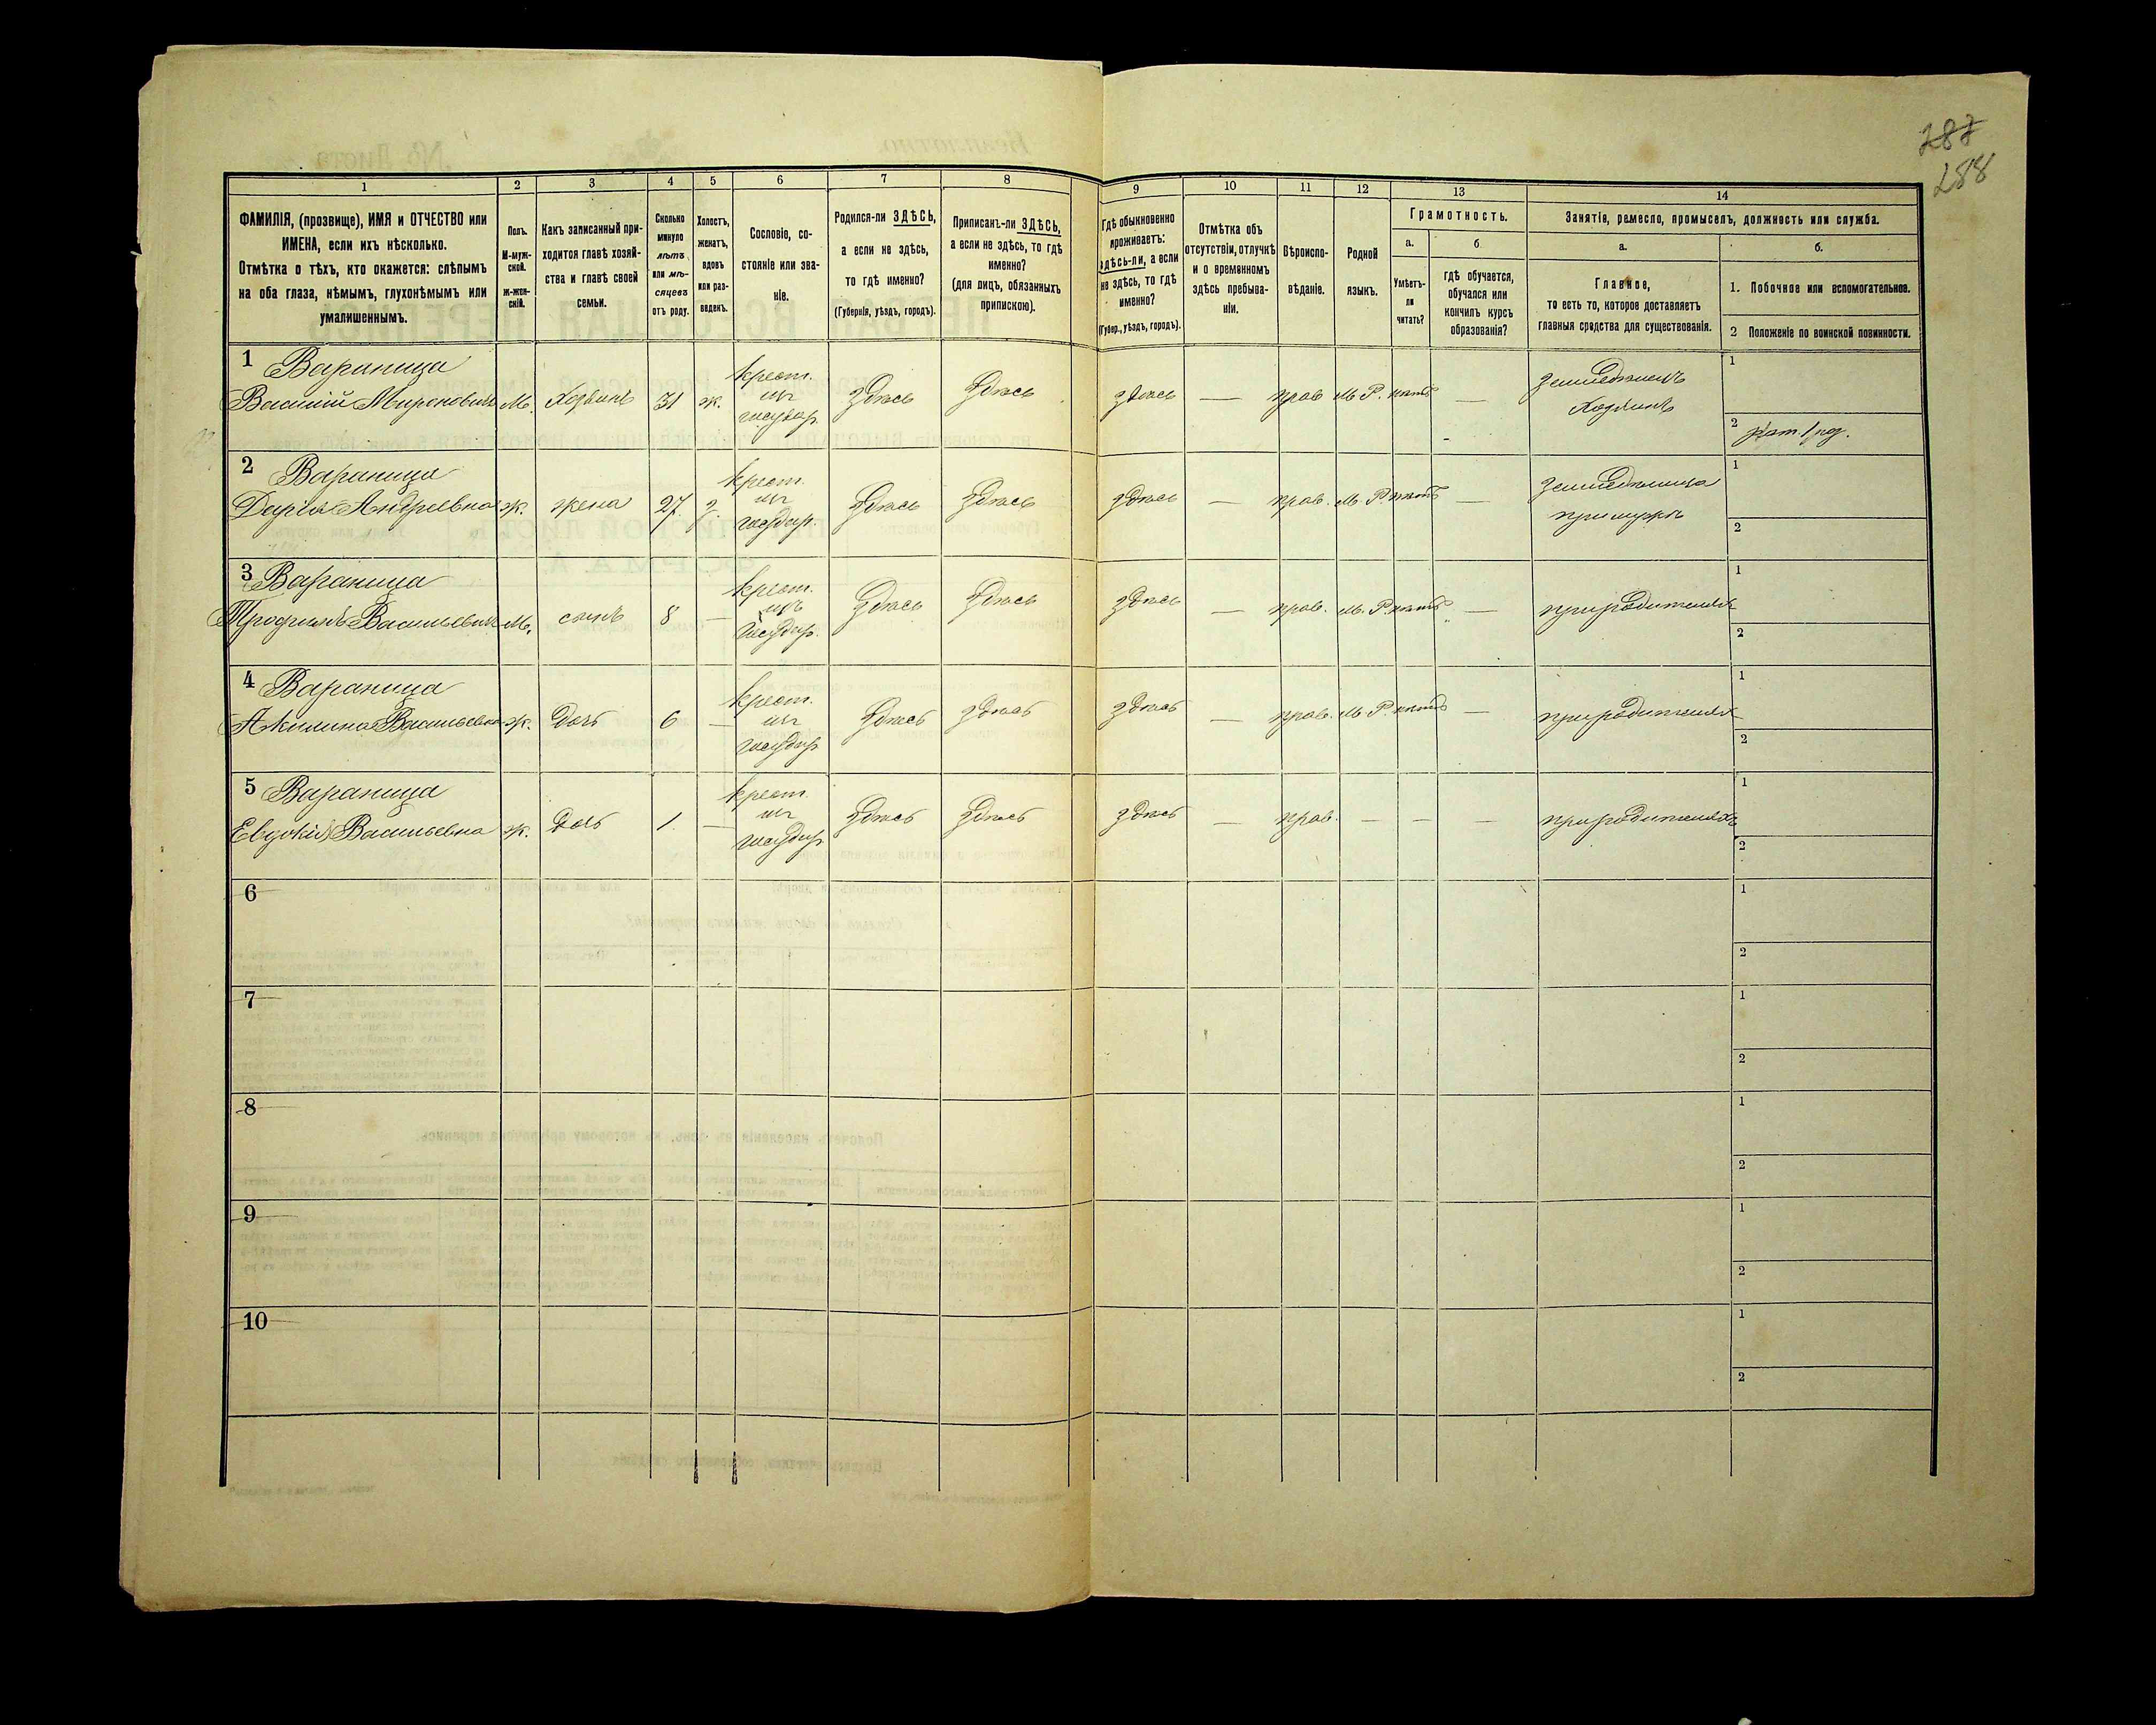 287
288
1
2
3
4
5
6
7
8
9
10
11
12
13
14
ФАМИЛІЯ, (прозвище), ИМЯ и ОТЧЕСТВО или
ИМЕНА, если ихъ нѣсколько.
Отмѣтка о тѣхъ, кто окажется: слѣпымъ
на оба глаза, нѣмымъ, глухонѣмымъ или
умалишеннымъ.
Полъ.
М-муж-
ской.
ж-жен-
скій.
Какъ записанный при-
ходится главѣ хозяй-
ства и главѣ своей
семьи.
Сколько
минуло
лѣтъ
или мѣ-
сяцевъ
отъ роду.
Холостъ,
женатъ,
вдовъ
или раз-
веденъ.
Сословіе, со-
стояніе или зва-
ніе.
Родился-ли ЗДѢСЬ,
а если не здѣсь,
то гдѣ именно?
(Губернія, уѣздъ, городъ).
Приписанъ-ли ЗДѢСЬ,
а если не здѣсь, то гдѣ
именно?
(для лицъ, обязанныхъ
припискою).
Гдѣ обыкновенно
проживаетъ:
здѣсь-ли, а если
не здѣсь, то гдѣ
именно?
(Губер., уѣздъ, городъ).
Отмѣтка объ
отсутствіи, отлучкѣ
и о временномъ
здѣсь пребыва-
ніи.
Вѣроиспо-
вѣданіе.
Родной
языкъ.
Грамотность.
а.
б.
Умѣетъ-
ли
читать?
гдѣ обучается,
обучался или
кончилъ курсъ
образованія?
Занятіе, ремесло, промыселъ, должность или служба.
а.
б.
Главное,
то есть то, которое доставляетъ
главныя средства для существованія.
1. Побочное или вспомогательное.
2 Положеніе по воинской повинности.
1 Вараница
Василій Мироновичъ М. Хозяинъ 31 ж. крест. изъ государ. Здѣсь Здѣсь здѣсь — прав М. Р. нѣтъ — земледѣлецъ хозяинъ
1
2 рат. 1 рад.
2 Вараница
Дарія Андреевна ж. жена 27 з. крест. изъ государ. Здѣсь Здѣсь здѣсь — прав. М. Р. нѣтъ — земледѣлица при мужѣ
1
2
3 Вараница
Трофимъ Васильевич М. сынъ 8 — крест. изъ государ. Здѣсь Здѣсь здѣсь — прав. М. Р. нѣтъ — при родителяхъ
1
2
4 Вараница
Акилина Васильевна ж. дочь 6 — крест. изъ государ Здѣсь здѣсь здѣсь — прав. М. Р. нѣтъ — при родителяхъ
1
2
5 Вараница
Евдокія Васильевна ж. дочь 1. — крест. изъ государ Здѣсь Здѣсь здѣсь — прав. — — — при родителяхъ
1
2
6
1
2
7
1
2
8
1
2
9
1
2
10
1
2